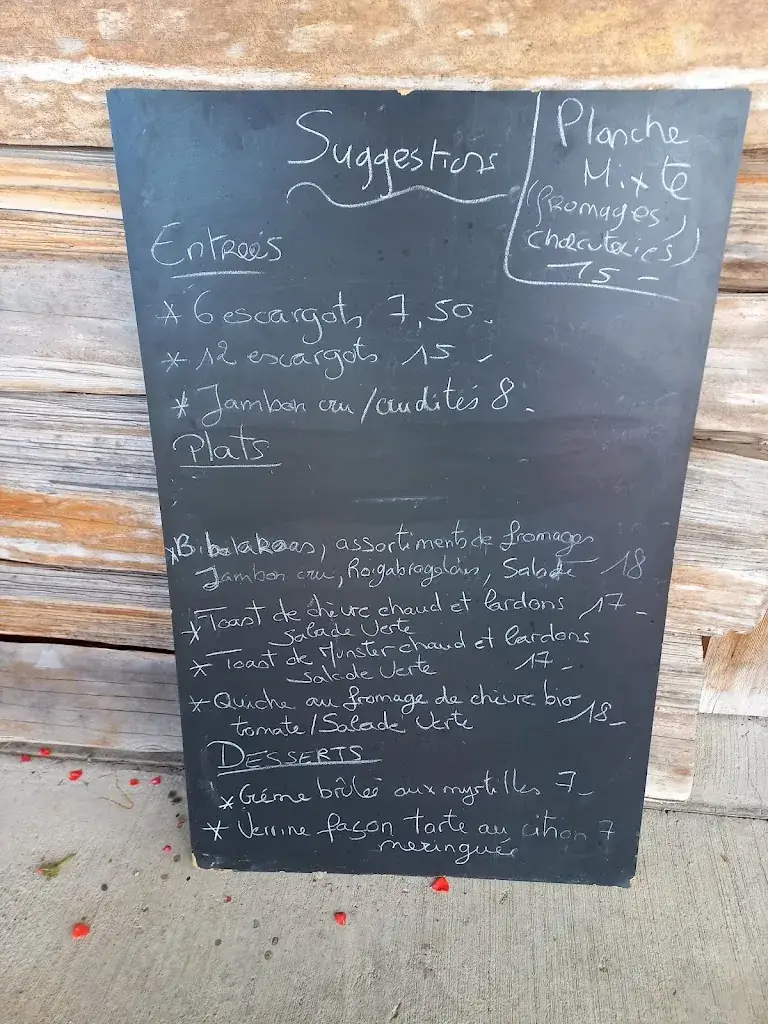 Suggestions
Planche
Mixte
(fromages,
charcuteries)
15-
Entrées
* 6 escargots 7,50-
* 12 escargots 15-
* Jambon cru/crudités 8-
Plats
assortiments de fromages
Jambon cru, Salade 18
* Toast de chèvre chaud et lardons 17-
Salade Verte
* Toast de Munster chaud et lardons
salade Verte 17-
* Quiche au fromage de chèvre bio
tomate/Salade Verte 18-
DESSERTS
* Crème brûlée aux myrtilles 7-
* Verrine façon tarte au citron 7
meringuée